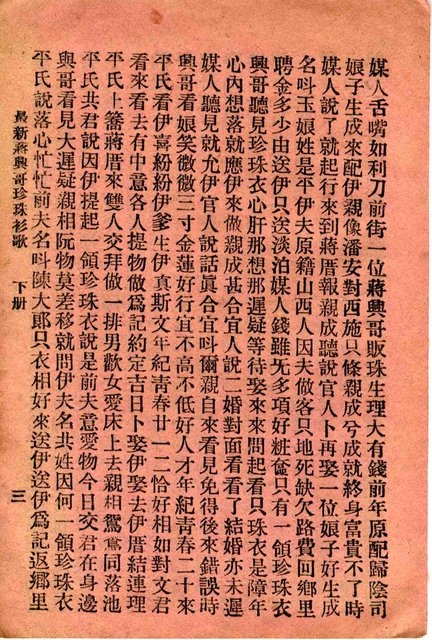 媒人舌嘴如利刀前街一位蔣興哥販珠生理大有錢前年原配歸陰司
娘子生成來配伊親像潘安對西施只條親成兮成就終身富貴不了時
媒人說了就起行來到蔣厝報親成聽說官人卜再娶一位娘子好生成
名叫玉娘姓是平伊夫原籍山西人因夫做客只地死缺欠路費回鄉里
聘金多少由送伊只送淡泊媒人錢雖無多項好粧奩只有一領珍珠衣
興哥聽見珍珠衣心肝那想那遲疑等待娶來來問起看只珠衣是障年
心內想落就應伊來做親成甚合宜人說二婚對面看看了結婚亦未遲
媒人聽見就允伊官人說話眞合宜叫爾親自來看見免得後來錯誤時
興哥看娘笑微微三寸金蓮好行宜不高不低好人才年紀青春二十來
平氏看伊喜紛紛伊爹生伊真斯文年紀青春廿一二恰好相如對文君
看來看去有中意各人提物做爲記約定吉日卜娶伊娶去伊厝結連理
平氏上轎蔣厝來雙人交拜做一排男歡女愛床上去親相鴛鴦同落池
平氏共君說因伊提起一領珍珠衣說是前夫意愛物今日交君在身邊
興哥看見大遲疑親相阮物莫差移就問伊夫名共姓因何一領珍珠衣
平氏說落心忙忙前夫名叫陳大郞只衣相好來送伊送伊爲記返鄉里
最新蔣興哥珍珠衫歌 下册 三